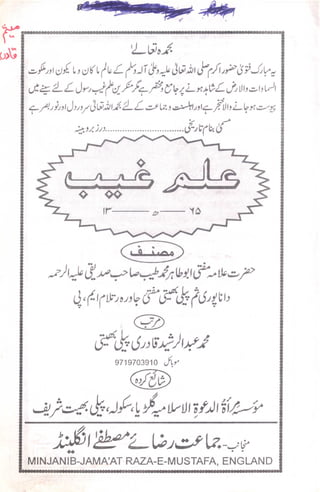 میثم
قادری
بحمدہ تعالیٰ
یہ مبارک فتویٰ حضور اکرم صلی اللہ تعالیٰ علیہ وعلیٰ آلہ وسلم کے عالم ما کان و ما یکون اور ملکوت
السمادات والارض کے شاہد ہونے پر جامع و مختصر ہے مگر منکرین علم غیب رسول کے لئے سینے میں
پیوست ہو جانے والا خنجر ہے اور اہلسنت و جماعت کے لئے بحمد اللہ تعالیٰ سرور دل اور نور بصر ہے
مسمیٰ بنام تاریخی
علم غیب
۱۳ ھ ۶۵
مصنف
حضرت علامہ مفتی ابو طاہر محمد طیب صاحب صدیقی علیہ الرحمہ
دانا پوری ثم پیلی بھیتی مفتی جاورہ رتلام ایم، پی
مرتب
محمد عبد الرشید قادری پیلی بھیتی
موبائل 9719703910
شائع کردہ
مؤسسہ مرأۃ الدعوۃ الاسلامیہ گلڑیا، سکولہ، پیلی بھیت شریف
منجانب- جماعت رضائے مصطفےٰ انگلینڈ
MINJANIB-JAMA'AT RAZA-E-MUSTAFA, ENGLAND